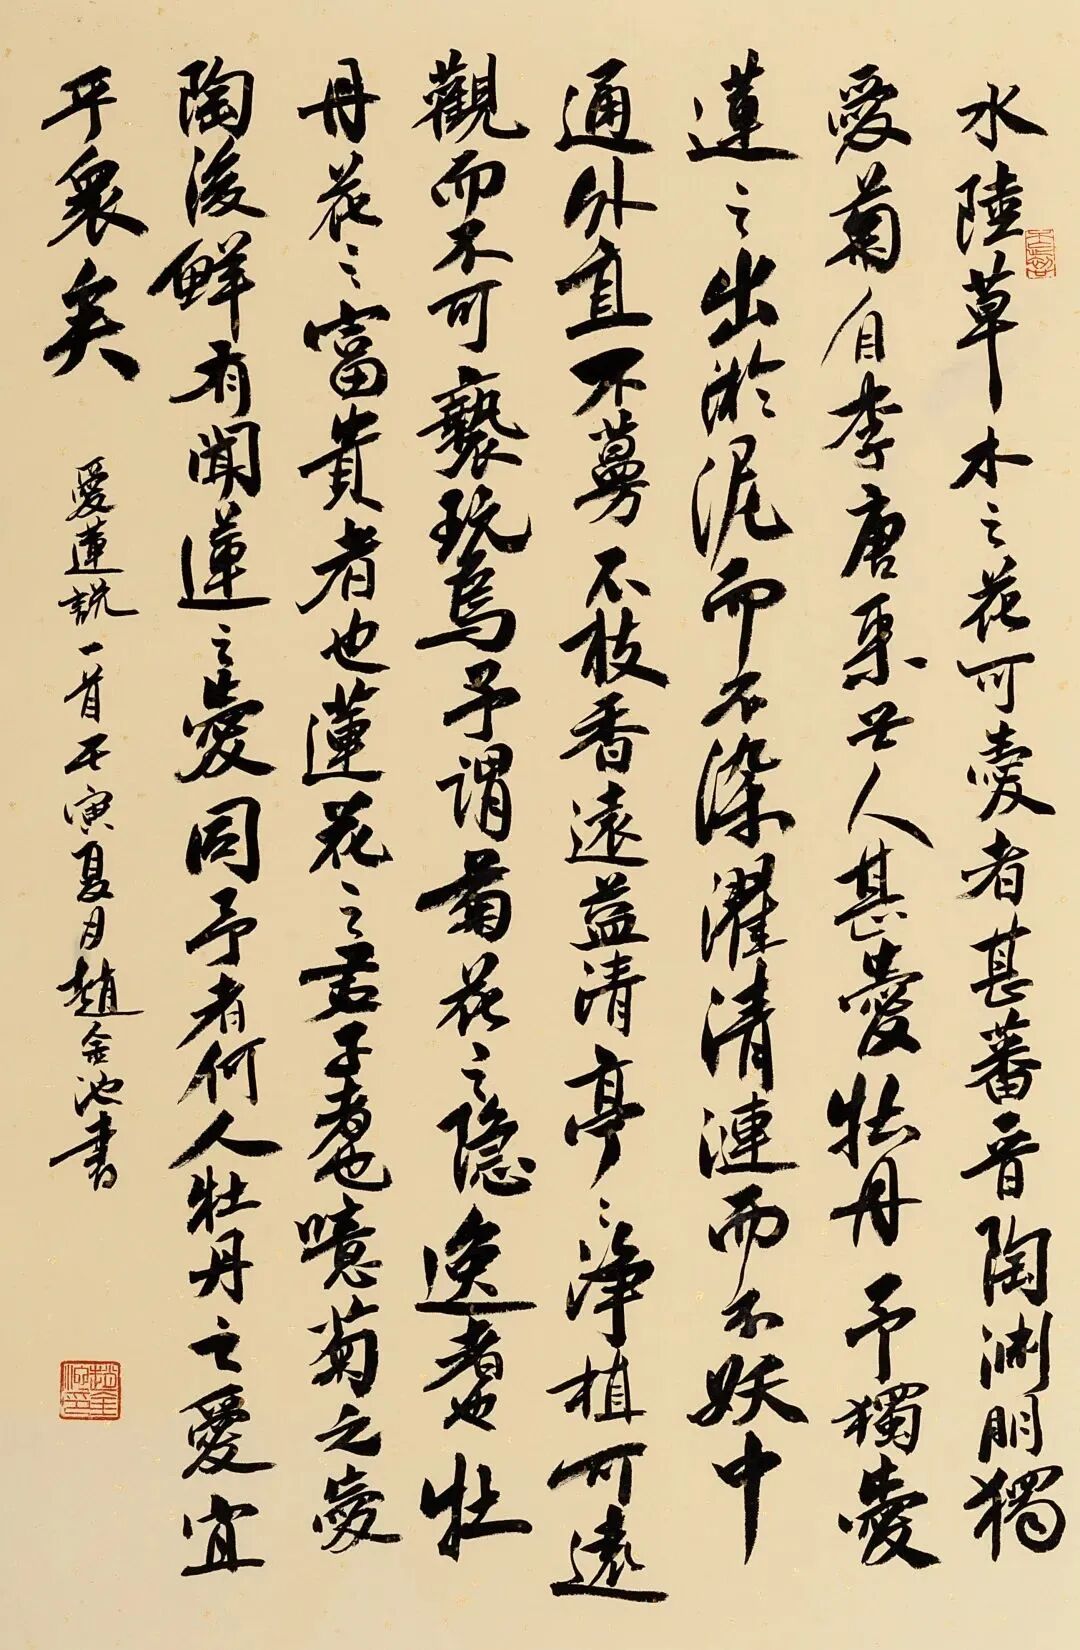 水陸草木之花可愛者甚蕃晉陶渊明獨
愛菊自李唐來世人甚愛牡丹予獨愛
蓮之出淤泥而不染濯清漣而不妖中
通外直不蔓不枝香遠益清亭〻淨植可遠
觀而不可褻玩焉予謂菊花之隐逸者也牡
丹花之富貴者也蓮花之君子者也噫菊之愛
陶後鮮有闻蓮之愛同予者何人牡丹之愛宜
乎衆矣
愛蓮説一首壬寅夏月趙金池書